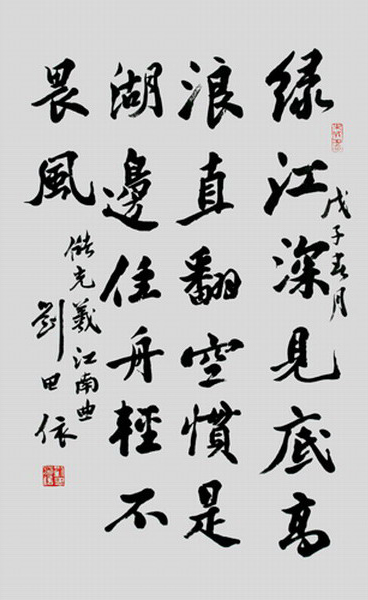 绿江深見底高
浪直翻空慣是
湖邊住舟輕不
畏風
戊子春月
儲光羲江南曲
劉田依